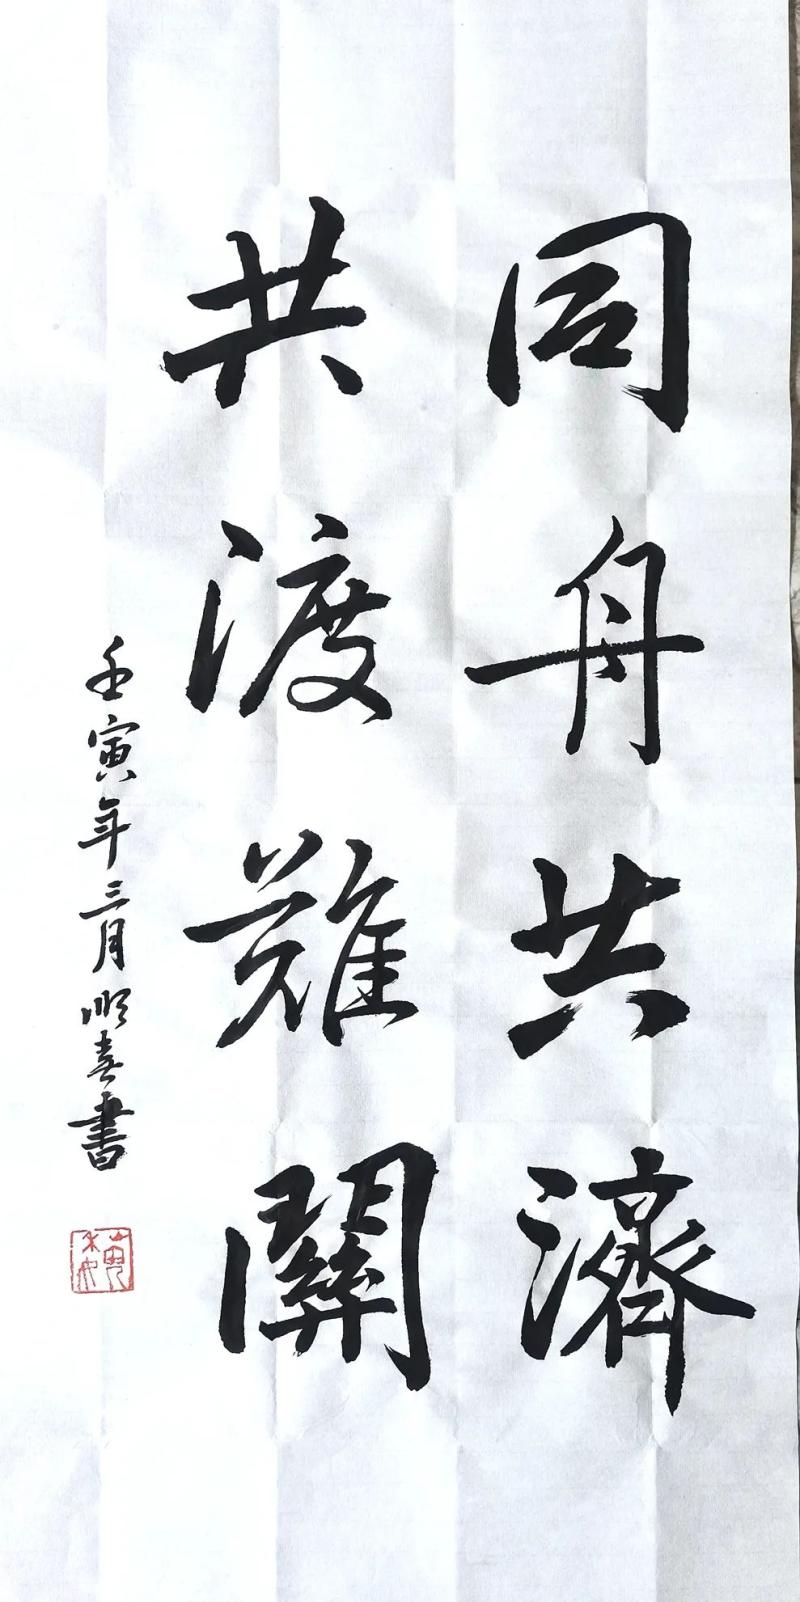 同舟共濟
共渡難關
壬寅年三月順喜書